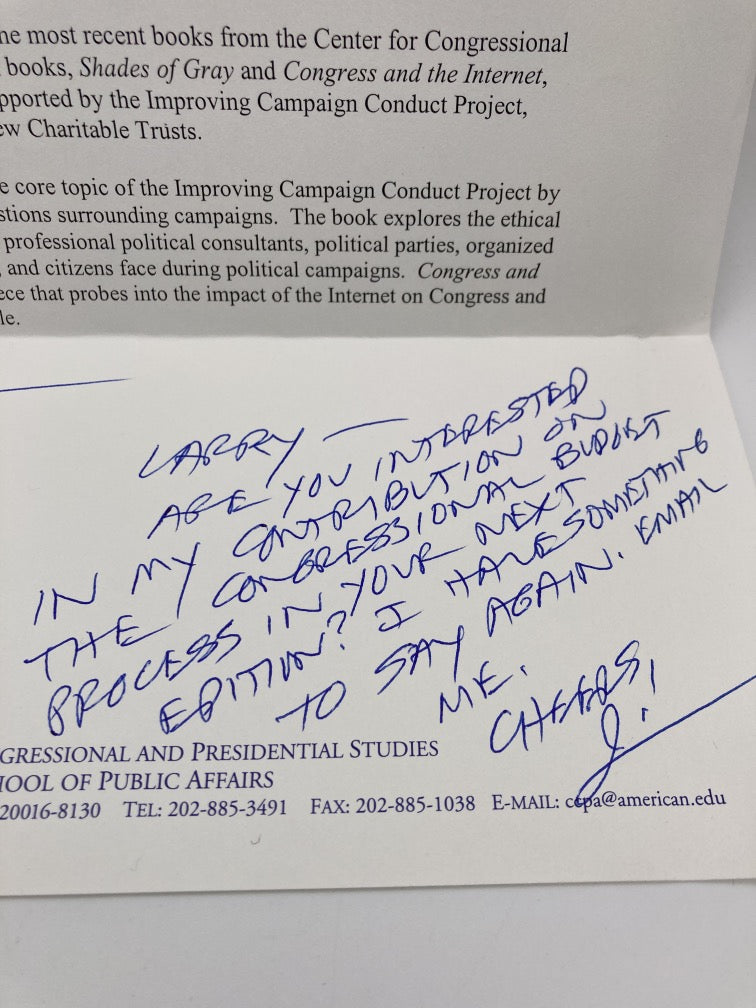 ne most recent books from the Center for Congressional
books, Shades of Gray and Congress and the Internet,
pported by the Improving Campaign Conduct Project,
ew Charitable Trusts.
e core topic of the Improving Campaign Conduct Project by
stions surrounding campaigns. The book explores the ethical
professional political consultants, political parties, organized
, and citizens face during political campaigns. Congress and
ece that probes into the impact of the Internet on Congress and
le.
LARRY —
ARE YOU INTERESTED
IN MY CONTRIBUTION ON
THE CONGRESSIONAL BUDGET
PROCESS IN YOUR NEXT
EDITION? I HAVE SOMETHING
TO SAY AGAIN. EMAIL
ME.
CHEERS,
J.
GRESSIONAL AND PRESIDENTIAL STUDIES
HOOL OF PUBLIC AFFAIRS
20016-8130 TEL: 202-885-3491 FAX: 202-885-1038 E-MAIL: ccpa@american.edu